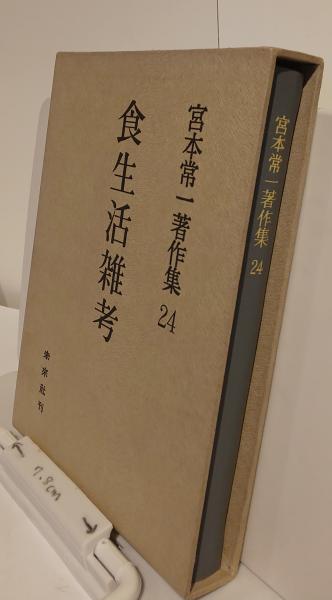 宮本常一著作集 24
食生活雑考
未來社刊
宮本常一著作集 24
7.8cm